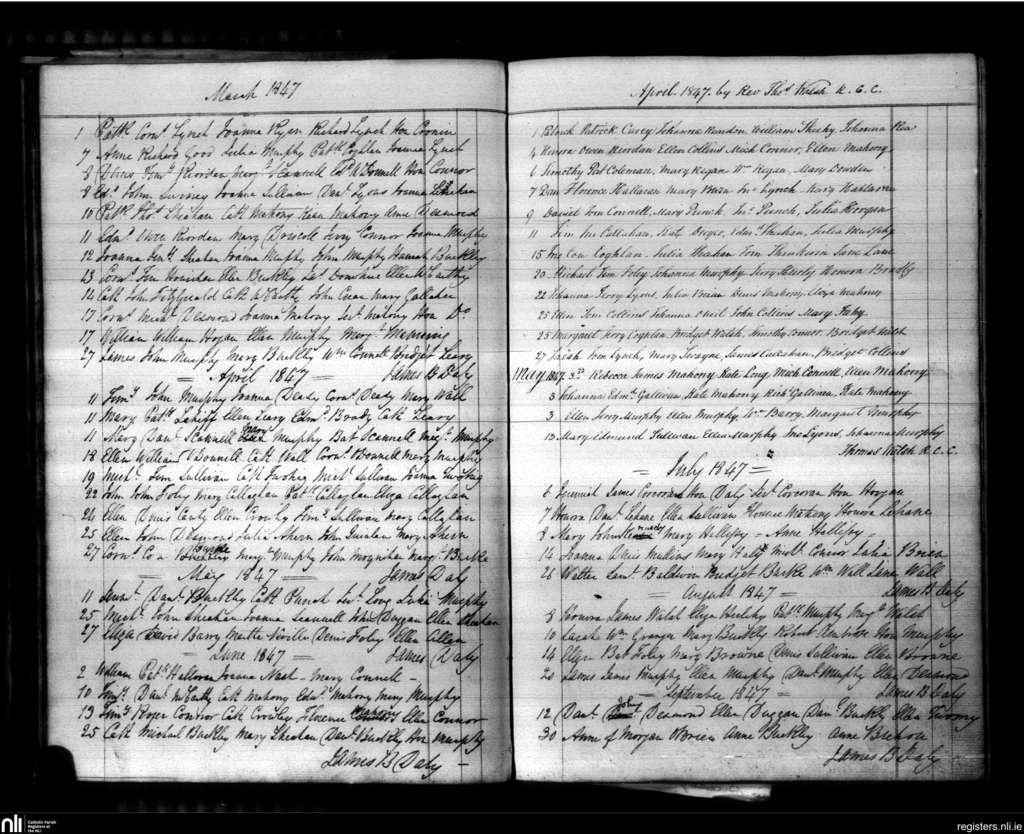 March 1847
1 Patk Corns Lynch Joanna Ryan Richard Lynch Hon Cronin
7 Anne Richard Good Julia Murphy Patk Coghlan Joanna Lynch
8 Riordan Margt Scannell Connor
8 John Sweeney Joanne Sullivan Danl Lyons Joanna Lehehan
10 Patk Thos Sheehan Cath Mahony Mahony Anne Desmond
11 Edmd Owen Riordan Mary Driscoll Jerry Connor Joanna Murphy
12 Joanna Joanna Murphy John Murphy Hannah Buckley
13 Corns Ellen Buckley Donohue Ellen McCarthy
14 Cath John Fitzgerald Cath McCarthy John Mary Gallaher
17 Corns Michl Desmond Joanna Mahony Mahony Hon Do
17 William William Hogan Ellen Murphy Margt
27 James John Murphy Mary Buckley Wm Connell Bridget Leary
= April 1847 = James B Daly
11 Timy John Murphy Joanna Deady Corns Deady Mary Wall
11 Mary Patk Ellen Leary Edmd Brady Cath Leary
11 Mary Danl Scannell Mary Murphy Bat Scannell Margt Murphy
18 Ellen William OConnell Cath Wall Corns OConnell Mary Murphy
19 Michl Tim Sullivan Cath Michl Sullivan Joanna Twohig
22 John John Foley Mary Callaghan Patk Callaghan Eliza Callaghan
24 Ellen Denis Canty Ellen Crowley Timy Sullivan Mary Callaghan
25 Ellen John Desmond Julia Ahern John Quinlan Mary Ahern
27 Corns Con Buckley Margt Murphy John Moynihan Margt Burke
= May 1847 = James Daly
11 Danl Buckley Cath Punch Long Julia Murphy
25 Michl John Sheehan Joanna Scannell John Duggan Ellen Sheehan
27 Eliza David Barry Martha Neville Denis Foley Ellen Callan
= June 1847 = James Daly
2 William Patk Halloran Joanna Nash - Mary Connell -
10 Timy Danl McCarthy Cath Mahony Edmd Mahony Mary Murphy
13 Timy Roger Connor Cath Crowley Florence Mahony Ellen Connor
25 Cath Michael Buckley Mary Sheehan Danl Buckley Hon Murphy
James B Daly -
April 1847. by Rev Thos Walsh R. C. C.
1 Patrick Patrick Carey Johanna Reardon, William Sheehy, Johanna Rea
4 Honora Owen Riordan Ellen Collins Mick Connor, Ellen Mahony
6 Timothy Pat Coleman, Mary Regan Wm Regan, Mary Dowden
7 Dan Florence Halloran Mary Jno Lynch, Mary Halloran
9 Daniel Tim Connell, Mary Punch, Jno Punch, Julia Horgan
11 Tim Callahan, Kate Dwyer, Edmd Sheehan, Julia Murphy
15 Jno Con Coghlan, Julia Sheehan Tom Lane
20 Michael Tim Foley Johanna Murphy, Jerry Hurley Honora Bradly
22 Johanna Jerry Lyons, Julia Brien Denis Mahony, Eliza Mahony
25 Ellen Tim Collins Johanna Neil John Collins Mary Fahy
25 Margaret Jerry Coghlan Bridget Walsh, Timothy Connor, Bridget Walsh
27 Tim Lynch, Mary Swayne, James Callahan, Bridget Collins
May 1847. 3rd Rebecca James Mahony Kate Long, Mick Connell, Ellen Mahony
3 Johanna Edmd Gallivan, Kate Mahony Richd Gallivan, Kate Mahony
3 Ellen Jerry Murphy Ellen Murphy, Wm Barry, Margaret Murphy
13 Mary Edmund Sullivan Ellen Murphy, Jno Lyons, Johanna Murphy
Thomas Walsh R. C. C.
= July 1847 =
6 Jeremiah James Corcoran Hon Daly Corcoran Hon Horgan
7 Honora Danl Lehane Ellen Sullivan Florence Mahony Honora Lehane
8 Mary John Mary Hallissy - Anne Hallissy -
14 Joanna Denis Mullins Mary Michl Connor Julia Brien
26 Walter Saml Baldwin Bridget Burke Wm Wall Jane Wall
= August 1847 = James B Daly
8 Honora James Walsh Eliza Patk Murphy Margt Walsh
10 Sarah Wm Granger Mary Buckley Robert Ambrose Hon Murphy
14 Eliza Bat Foley Mary Browne Denis Sullivan Ellen Browne
20 James James Murphy Ellen Murphy Danl Murphy Ellen Desmond
- September 1847 = James B Daly
12 Danl John Desmond Ellen Duggan Danl Buckley Ellen Twomy
30 Anne of Morgan OBrien Anne Buckley Anne
James B Daly
nli
Catholic Parish
Registers at
the NLI
registers.nli.ie